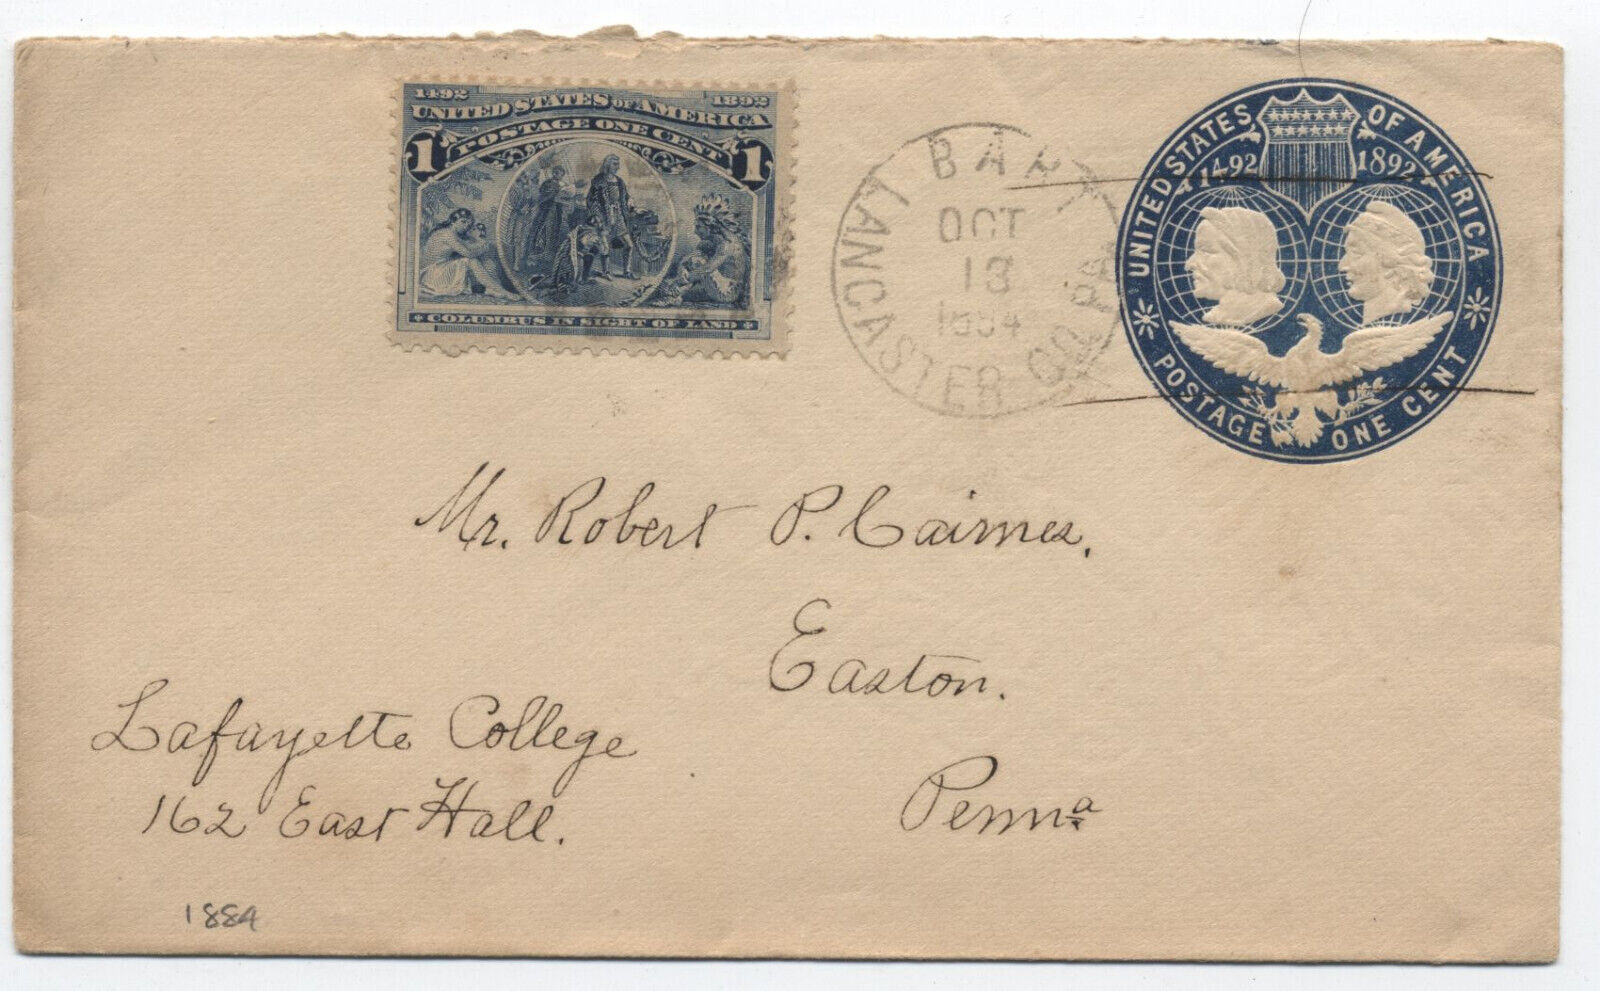 1492 1892
UNITED STATES OF AMERICA
POSTAGE ONE CENT
1 1
COLUMBUS IN SIGHT OF LAND
BART
LANCASTER CO PA
OCT
13
1894
UNITED STATES OF AMERICA
1492 1892
POSTAGE ONE CENT
Mr. Robert P. Cairnes,
Easton.
Pennª
Lafayette College
162 East Hall.
1884